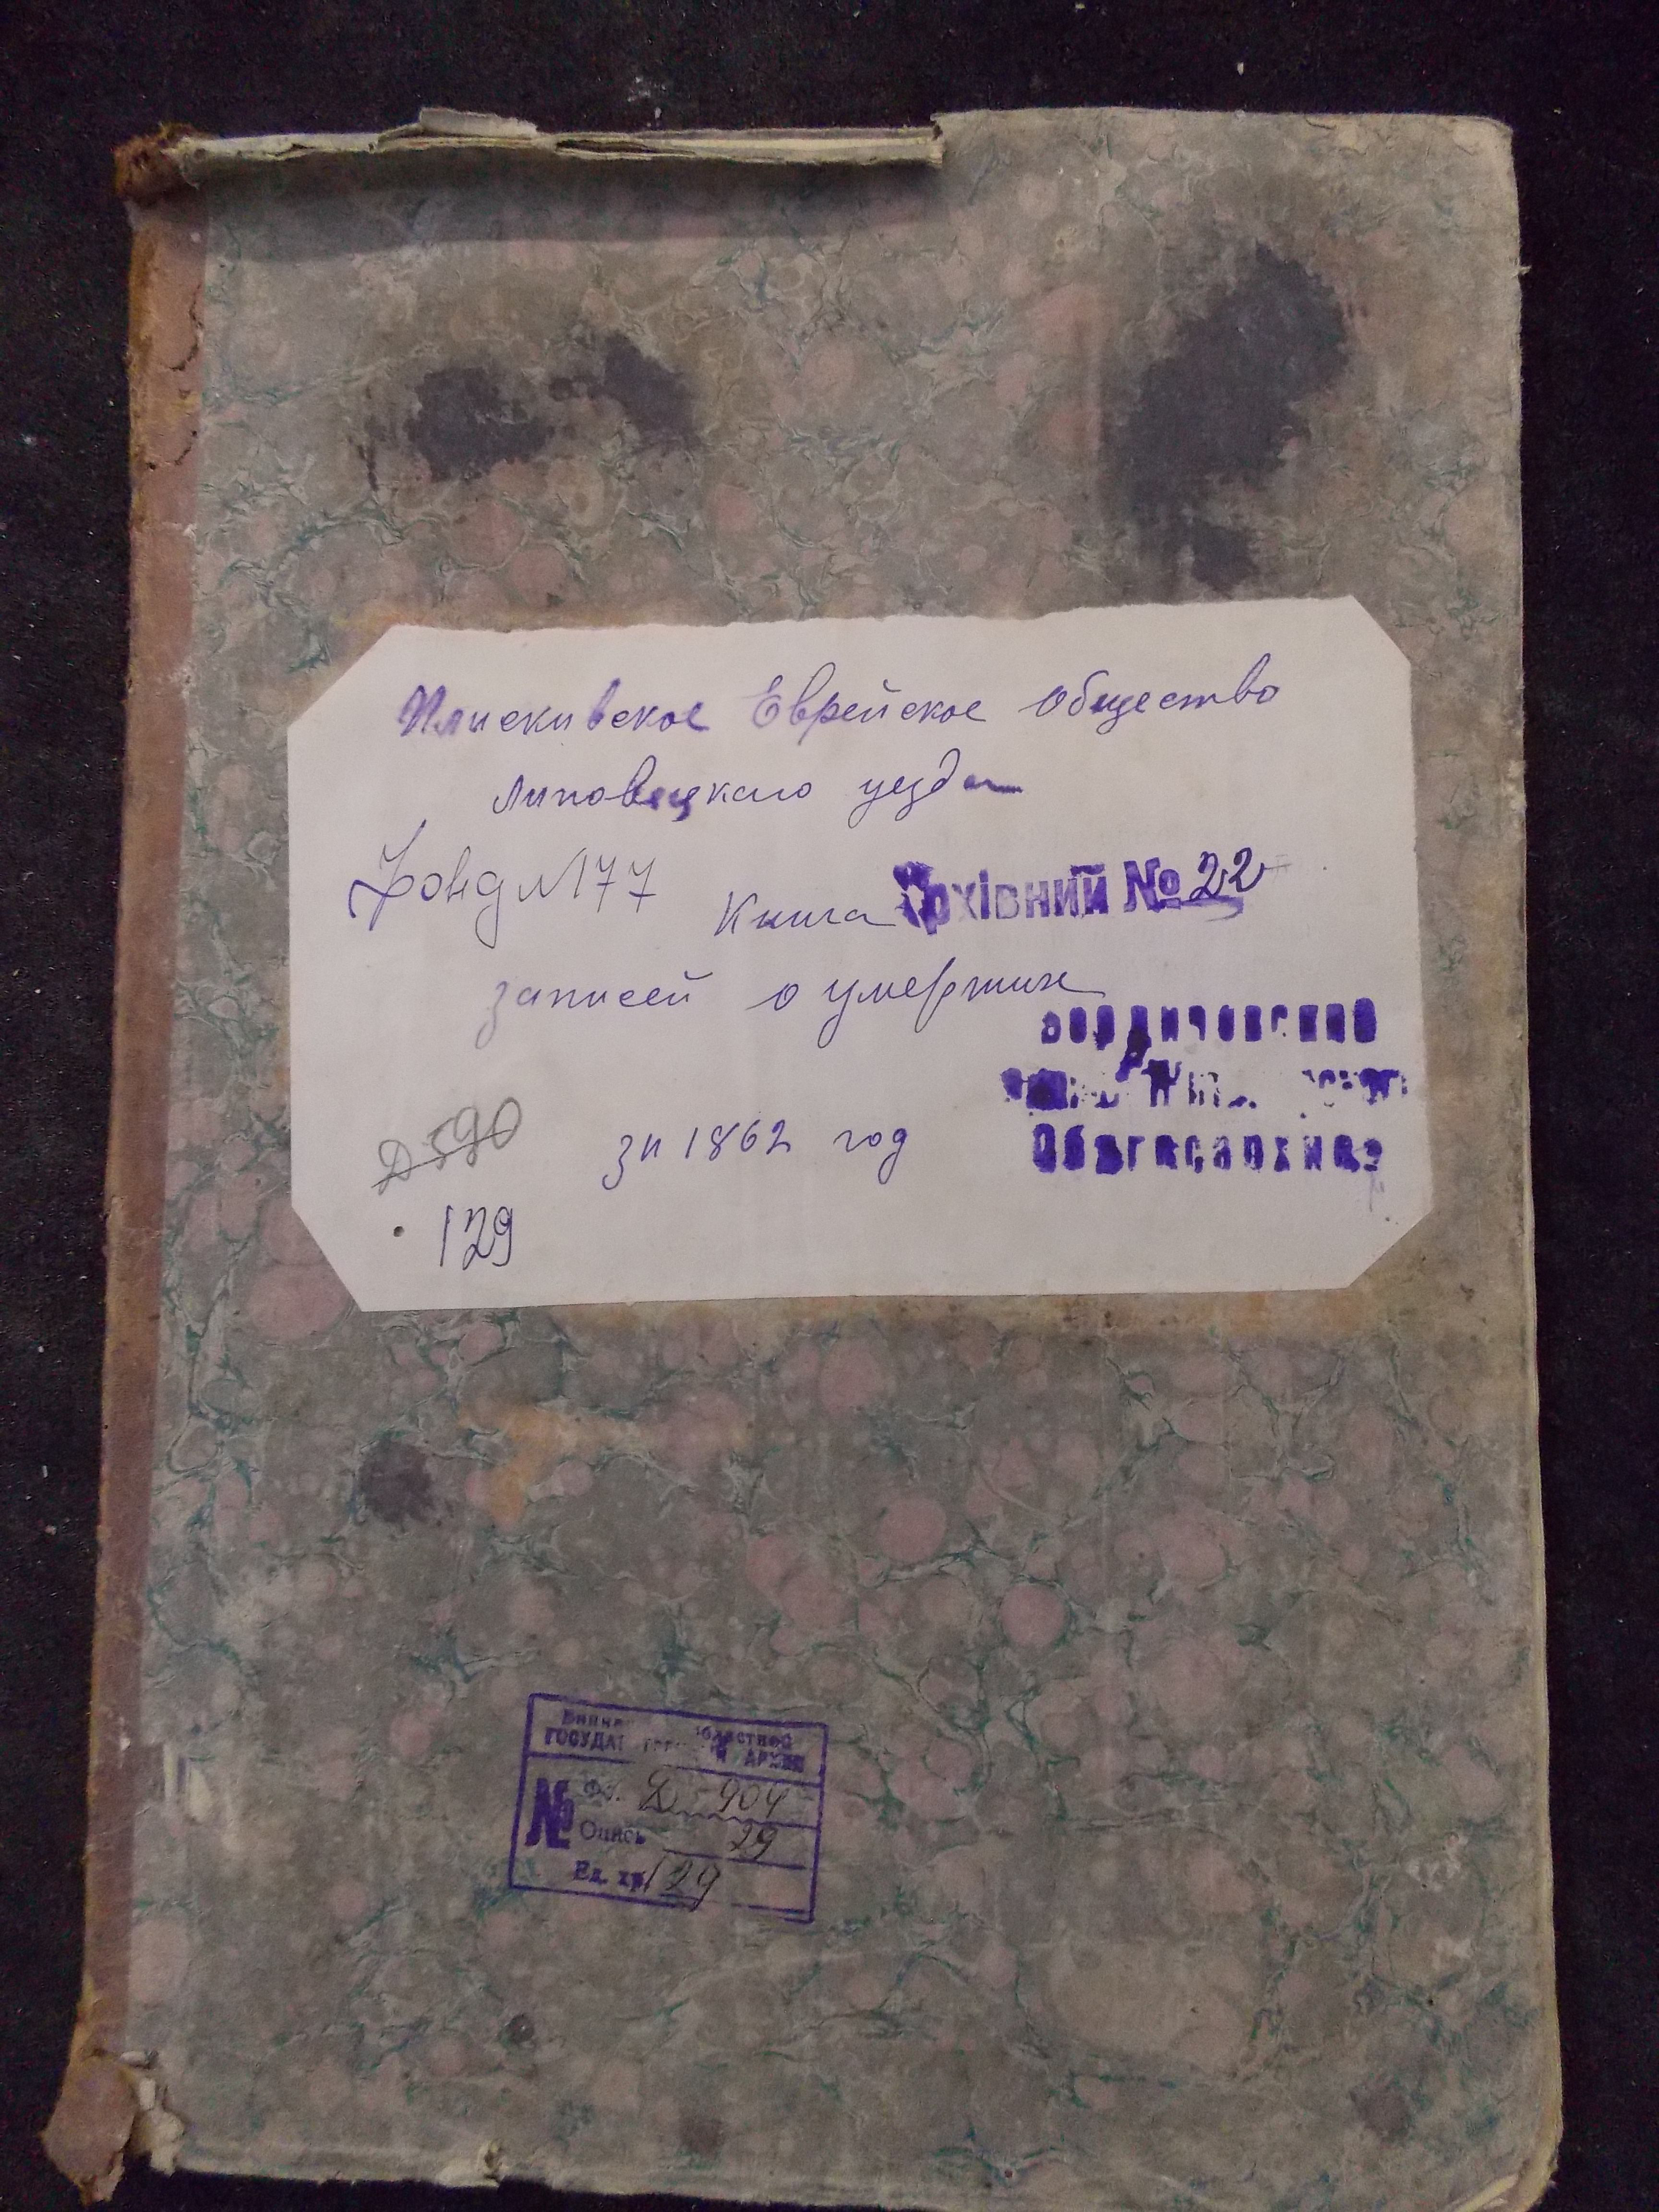 Плисківское Еврейское общество
Липовецкаго уезда
Фонд №177
Книга Архівний № 22
записей о умерших
Бердичевский
Облгосархива
Д 590
за 1862 год
129
областной
АРХИВ
№ Фо. Д-904
Опись 29
Ед. хр. 129